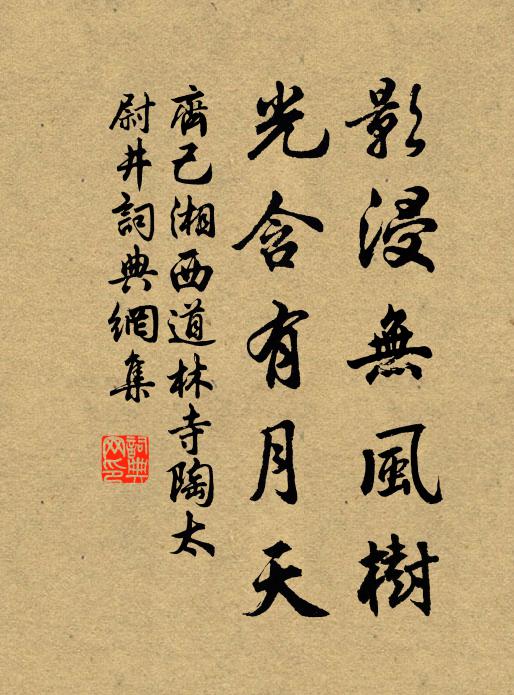 影浸無風樹
光含有月天
齊己湘西道林寺陶太
尉井詞典網集
詞典
网印